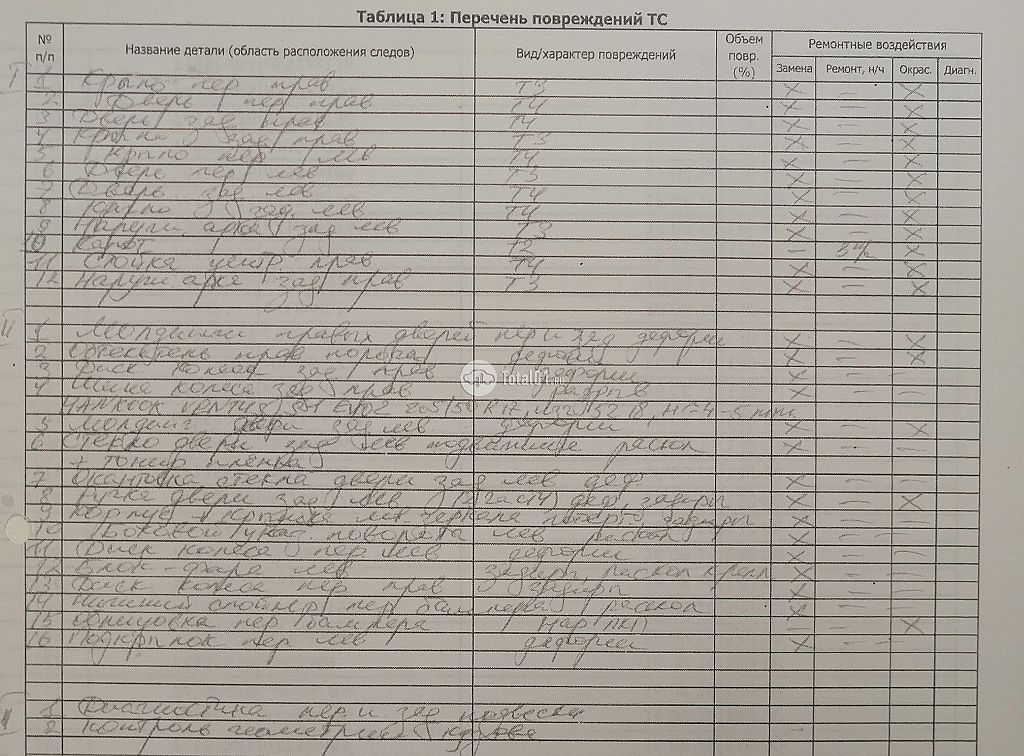 Таблица 1: Перечень повреждений ТС
№ п/п Название детали (область расположения следов) Вид/характер повреждений Объем повр. (%) Ремонтные воздействия
Замена Ремонт, н/ч Окрас. Диагн.
I 1 Крыло пер прав Т3 X — X
2 Дверь пер прав Т4 X — X
3 Дверь зад прав Т4 X — X
4 Крыло зад прав Т3 X — X
5 Крыло пер лев Т4 X — X
6 Дверь пер лев Т3 X — X
7 Дверь зад лев Т4 X — X
8 Крыло зад. лев Т4 X — X
9 Наружн. арка зад лев Т3 X — X
10 Капот Т2 — X
11 Стойка центр прав Т4 X — X
12 Наружн арка зад прав Т3 X — X
II 1 Молдинги правых дверей пер и зад деформ X — X
2 Обтекатель прав порога X — X
3 Диск колеса зад прав деформ X — —
4 Шина колеса зад прав разрыв X — —
HANKOOK 205/50 R 17
5 Молдинг двери зад лев деформ X — X
6 Стекло двери зад лев раскол X — —
+ тонир пленка
7 Окантовка стекла двери зад лев деф X — —
8 Ручка двери зад лев деф, задиры X — X
9 Корпус + крышка лев зеркала задиры X — —
10 Боковой указ. поворота лев раскол X — —
11 Диск колеса пер лев деформ X — —
12 Блок-фара лев задиры, раскол крепл X — —
13 Диск колеса пер прав задиры X — —
14 Нижний спойлер пер бампера раскол X — —
15 Облицовка пер бампера — — X
16 Подкрылок пер лев деформ X — —
1 Диагностика пер и зад подвески
2 Контроль геометрии кузова